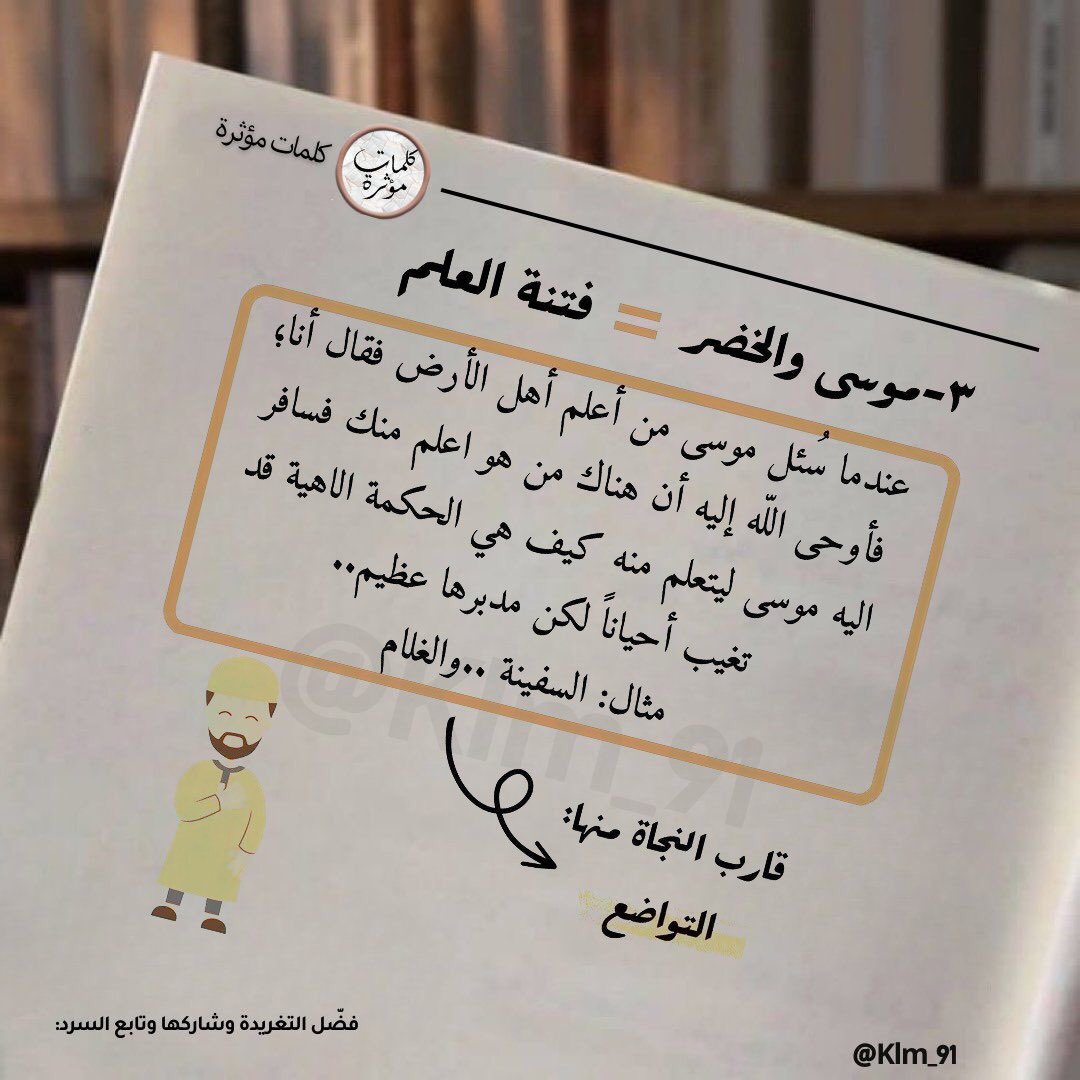 كلمات مؤثرة
كلمات
مؤثرة
٣-موسى والخضر = فتنة العلم
عندما سُئل موسى من أعلم أهل الأرض فقال أنا؛
فأوحى الله إليه أن هناك من هو اعلم منك فسافر
اليه موسى ليتعلم منه كيف هي الحكمة الاهية قد
تغيب أحياناً لكن مدبرها عظيم..
مثال: السفينة ..والغلام
@Klm_91
قارب النجاة منها:
التواضع
فضّل التغريدة وشاركها وتابع السرد:
@Klm_91